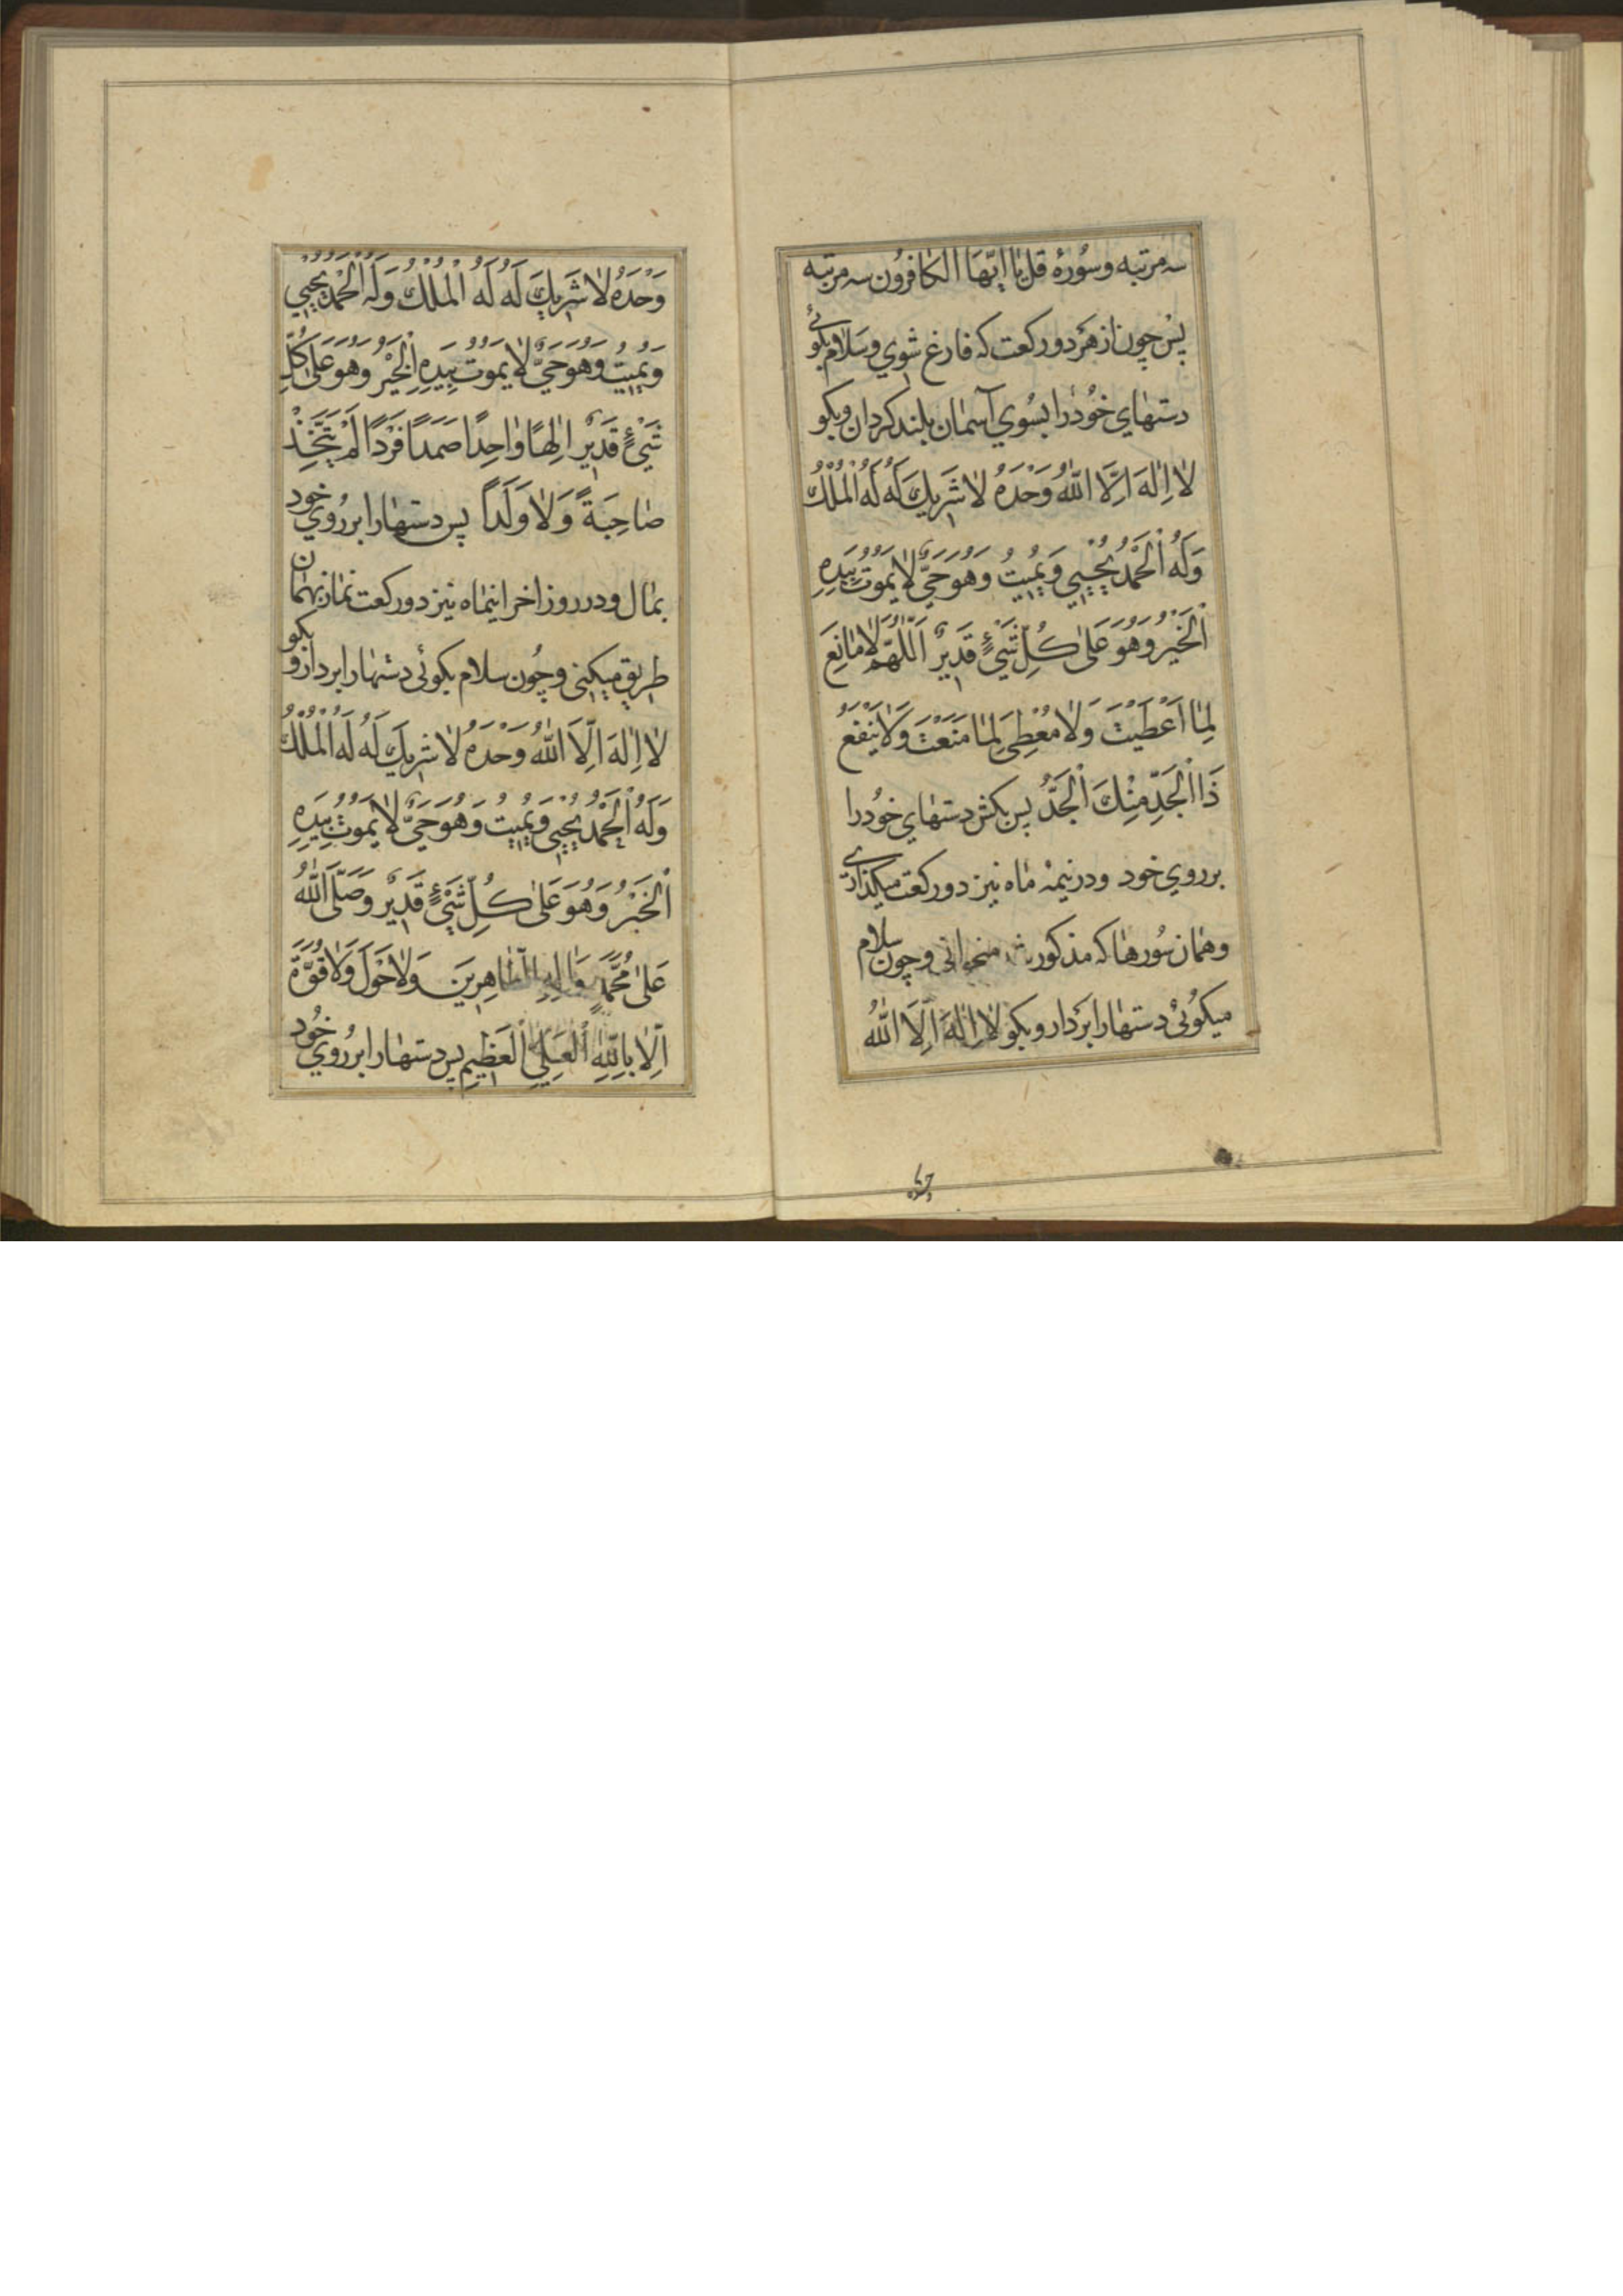 سه مرتبه وسُورهٔ قل یٰا ایّهَا الکٰافرُون سه مرتبه
پسْ چون از هَر دو رکعت که فارغ شوي وسَلام بکوئے
دستهٰاي خُودْرا بسُوي آسمٰان بلند کردان وبکو
لٰا اِلٰهَ اِلَّا اللّٰهُ وَحْدَهُ لٰا شَرِيكَ لَهُ لَهُ الْمُلْكُ
وَلَهُ الْحَمْدُ يُحْيِي وَيُمِيتُ وَهُوَ حَيٌّ لٰا يَمُوتُ بِيَدِهِ
الْخَيْرُ وَهُوَ عَلىٰ كُلِّ شَيْءٍ قَدِيرٌ اَللّٰهُمَّ لٰا مٰانِعَ
لِمٰا اَعْطَيْتَ وَلٰا مُعْطِيَ لِمٰا مَنَعْتَ وَلٰا يَنْفَعُ
ذَا الْجَدِّ مِنْكَ الْجَدُّ پس بکش دستهٰاي خُودرا
برروي خود ودر نیمهٔ مٰاه نیز دو رکعت میکذاری
وهمٰان سُورهٰا که مذکور شد میخوانی وچون سلام
میکوُئی دستهٰا را بَردار وبکو لٰا اِلٰهَ اِلَّا اللّٰهُ
وَحْدَهُ لٰا شَرِيكَ لَهُ لَهُ الْمُلْكُ وَلَهُ الْحَمْدُ يُحْيِي
وَيُمِيتُ وَهُوَ حَيٌّ لٰا يَمُوتُ بِيَدِهِ الْخَيْرُ وَهُوَ عَلىٰ كُلِّ
شَيْءٍ قَدِيرٌ اِلٰهًا وٰاحِدًا صَمَدًا فَرْدًا لَمْ يَتَّخِذْ
صٰاحِبَةً وَلٰا وَلَدًا پس دستهٰا را بر رُوي خود
بمٰال ودر روز اخر اینمٰاه نیز دو رکعت نمٰاز بهمٰان
طریق میکنی وچُون سلام بکوئی دستهٰا را بردار و بکو
لٰا اِلٰهَ اِلَّا اللّٰهُ وَحْدَهُ لٰا شَرِيكَ لَهُ لَهُ الْمُلْكُ
وَلَهُ الْحَمْدُ يُحْيِي وَيُمِيتُ وَهُوَ حَيٌّ لٰا يَمُوتُ بِيَدِهِ
الْخَيْرُ وَهُوَ عَلىٰ كُلِّ شَيْءٍ قَدِيرٌ وَصَلَّى اللّٰهُ
عَلىٰ مُحَمَّدٍ وَاٰلِهِ الطّٰاهِرِينَ وَلٰا حَوْلَ وَلٰا قُوَّةَ
اِلّٰا بِاللّٰهِ الْعَلِيِّ الْعَظِيمِ پس دستهٰا را بر رُوي خُود
وحده